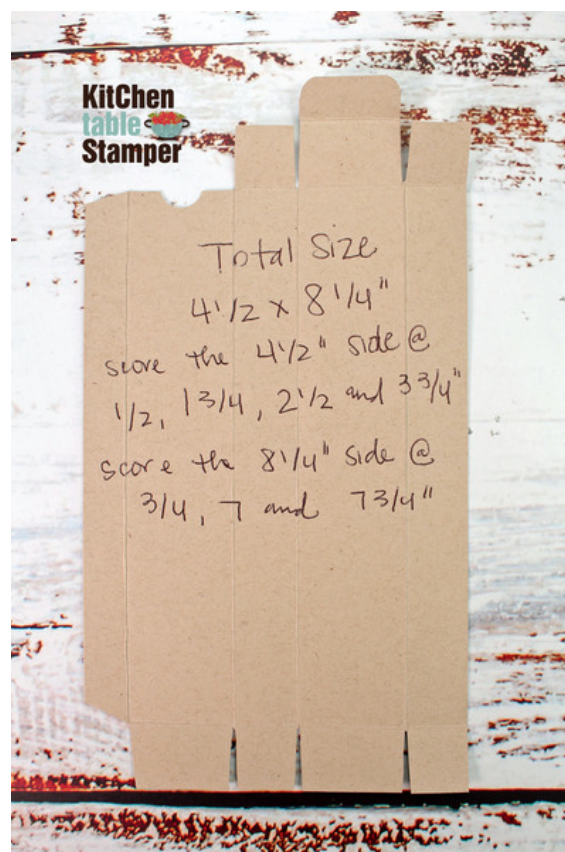 KitChen
table
Stamper
Total Size
4 1/2 x 8 1/4"
score the 4 1/2" side @
1/2, 1 3/4, 2 1/2 and 3 3/4"
score the 8 1/4" side @
3/4, 7 and 7 3/4"